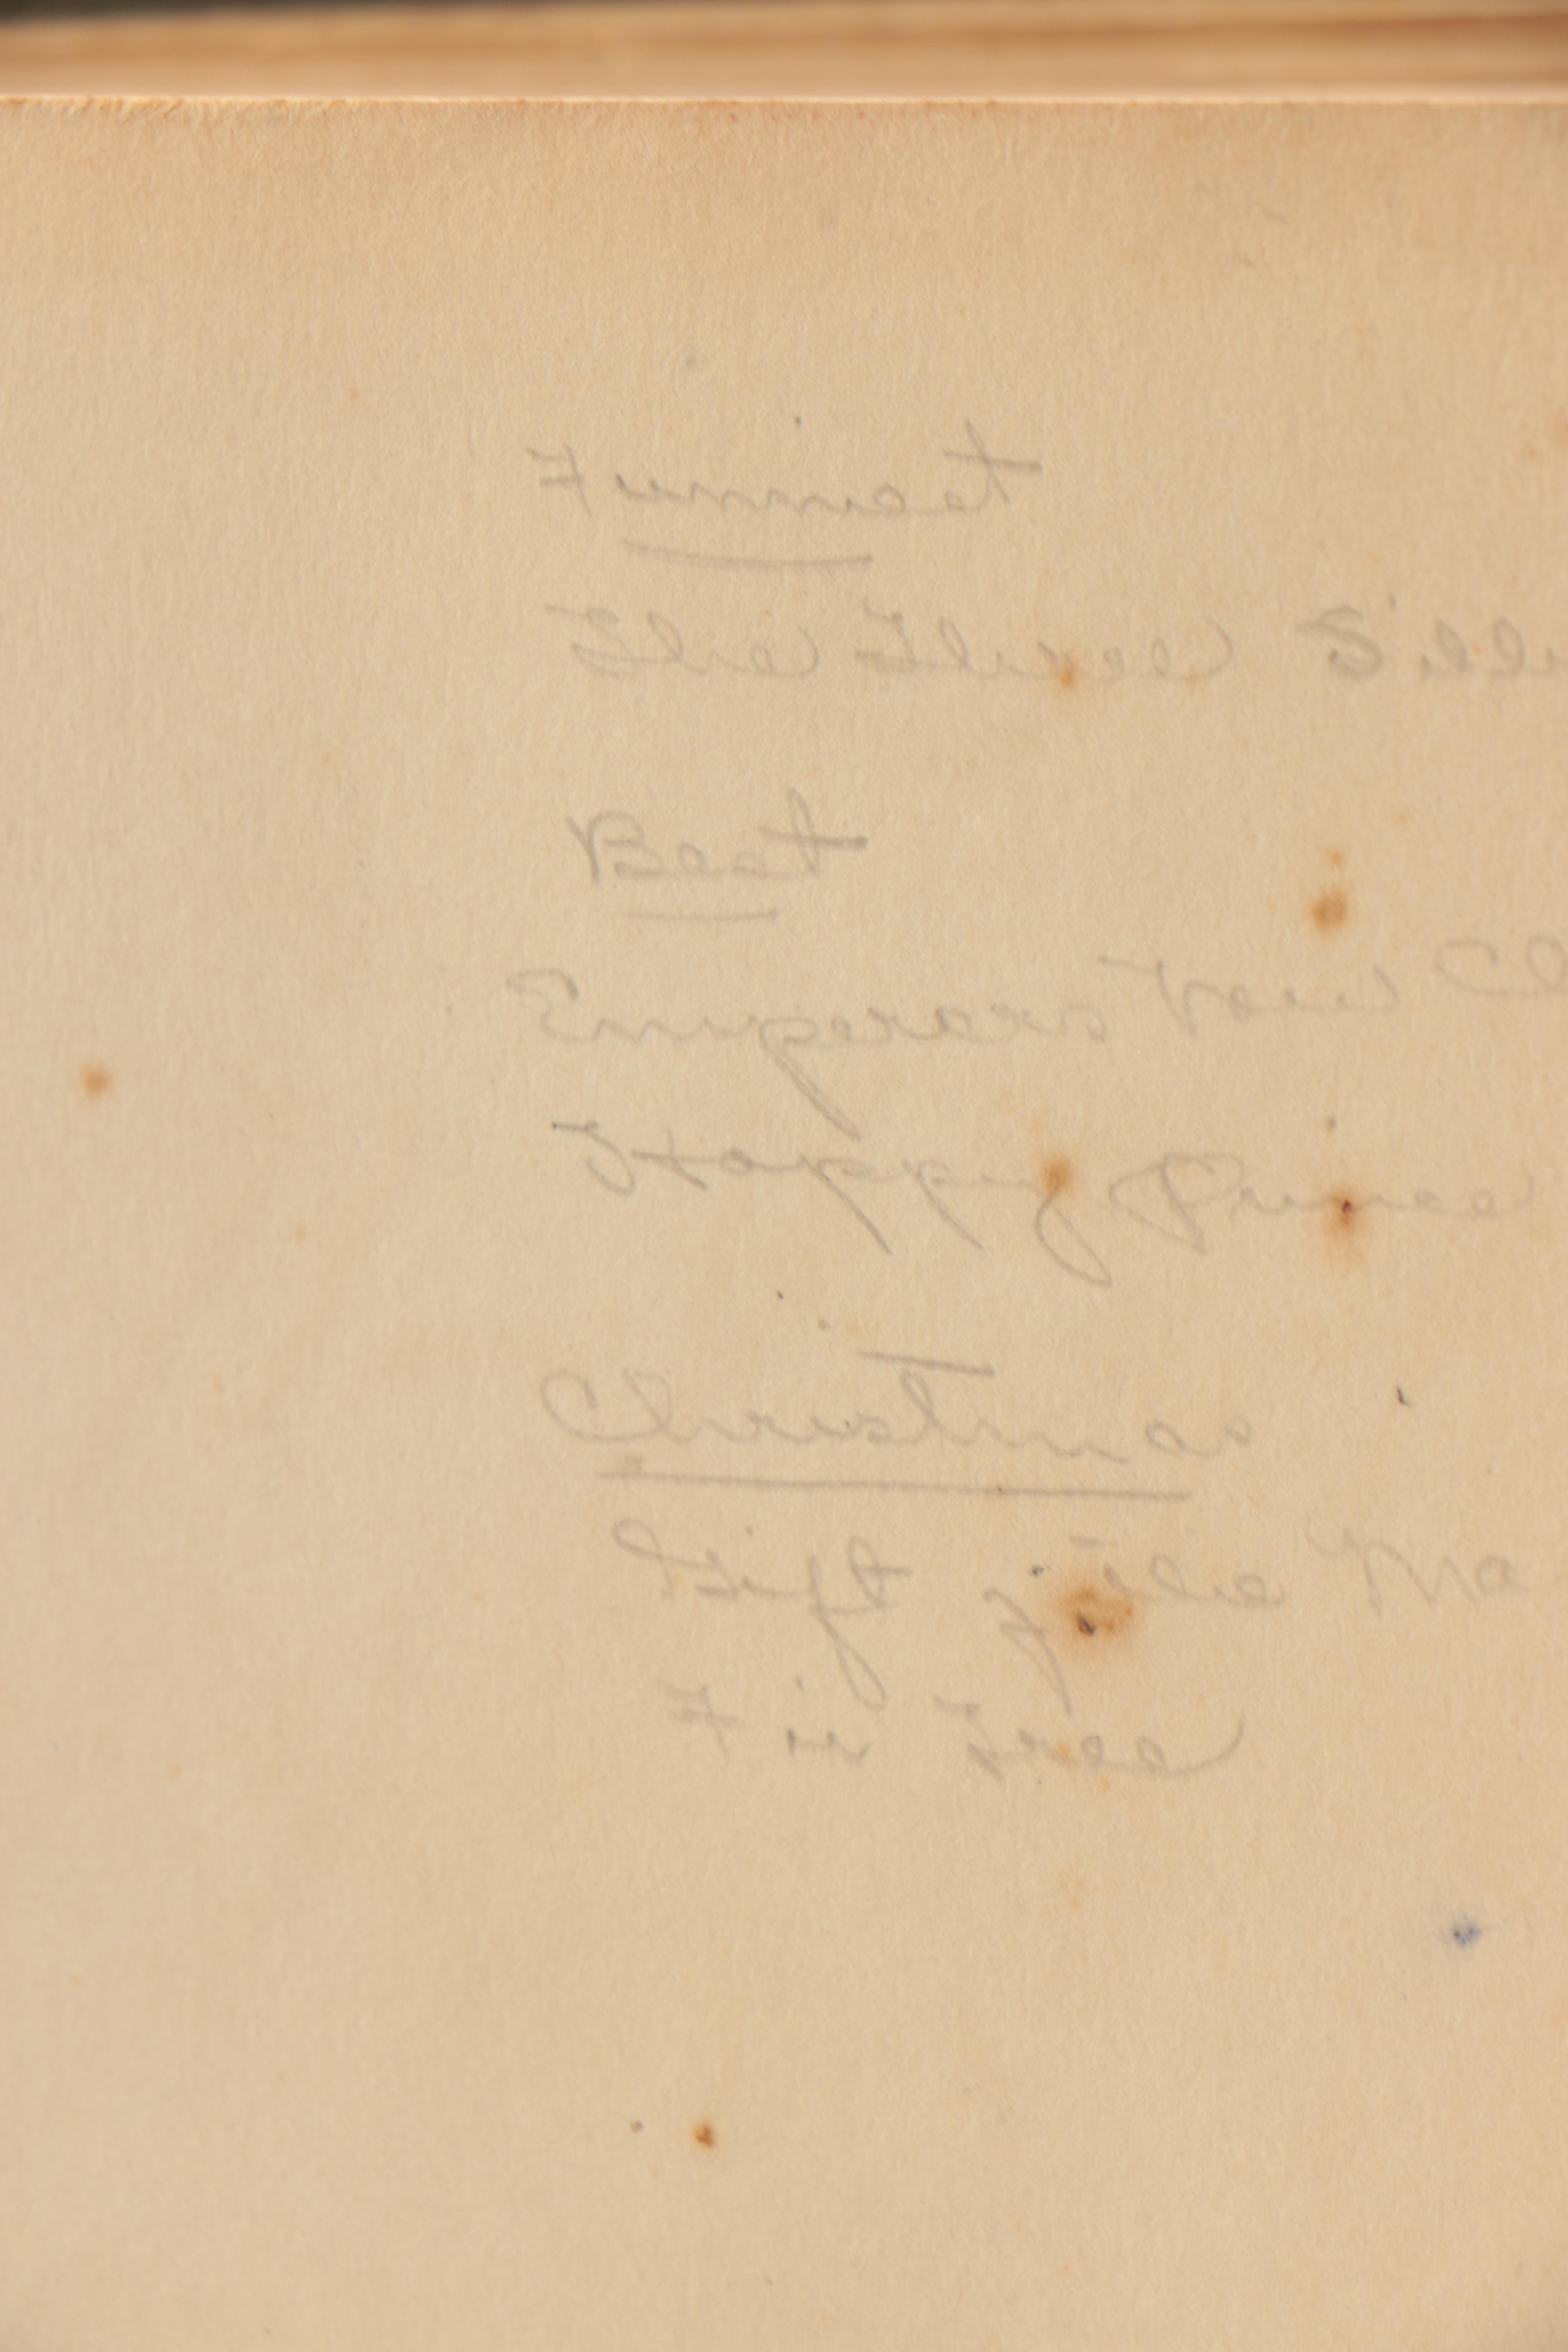 Funniest
The Three Silli
Best
Emperors New Cl
Happy Prince
Christmas
Gift of the Ma
Fir Tree